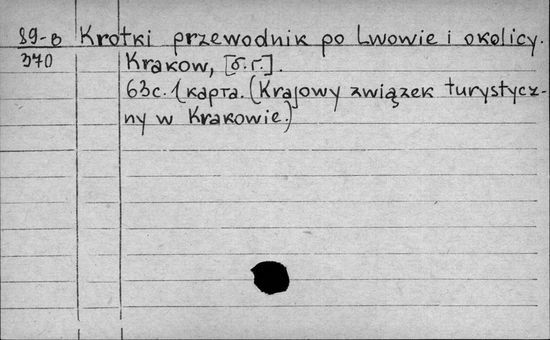 89-в Krótki przewodnik po Lwowie i okolicy.
370 Krakow, [б.г.].
63с. 1 карта. (Krajowy związek turystycz-
ny w Krakowie.)